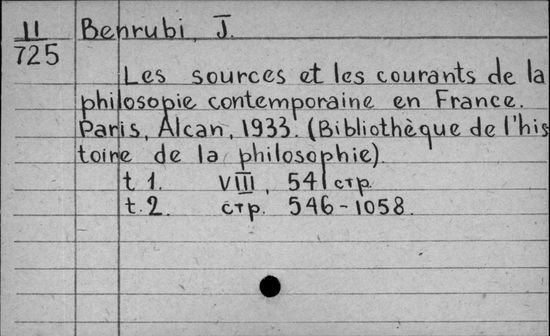 II
725
Benrubi, J.
Les sources et les courants de la
philosopie contemporaine en France.
Paris, Alcan, 1933. (Bibliothèque de l'his
toire de la philosophie)
t 1. VIII, 541 стр.
t. 2. стр. 546-1058.